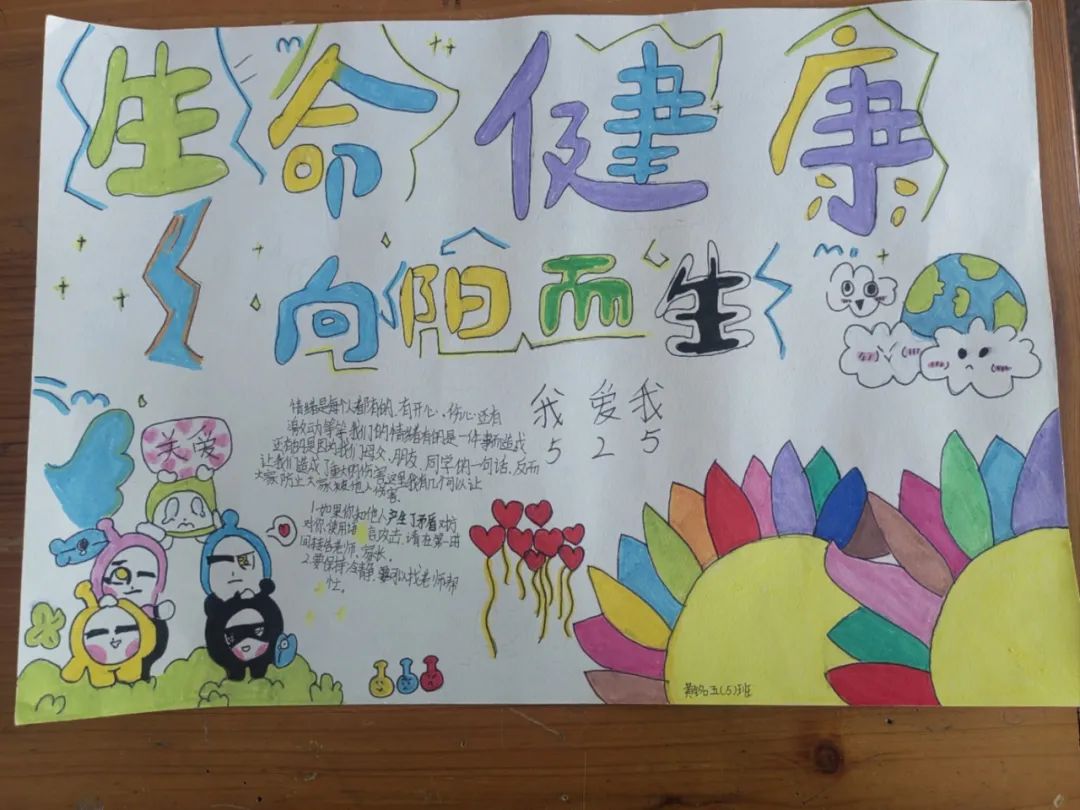 生命健康
向阳而生
关爱
情绪是每个人都有的,有开心、伤心还有
激动等等我们的情绪有的是一件事所造成
还有的是因为我们母父、朋友、同学们的一句话、反而
让我们造成了重大的伤害,这里我有几个可以让
大家防止大家被他人伤害。
1.如果你和他人产生了矛盾对方
对你使用语言攻击,请在第一时
间转告老师、家长。
2.要保持冷静,要可以找老师帮
忙。
我 爱 我
5 2 5
五(5)班